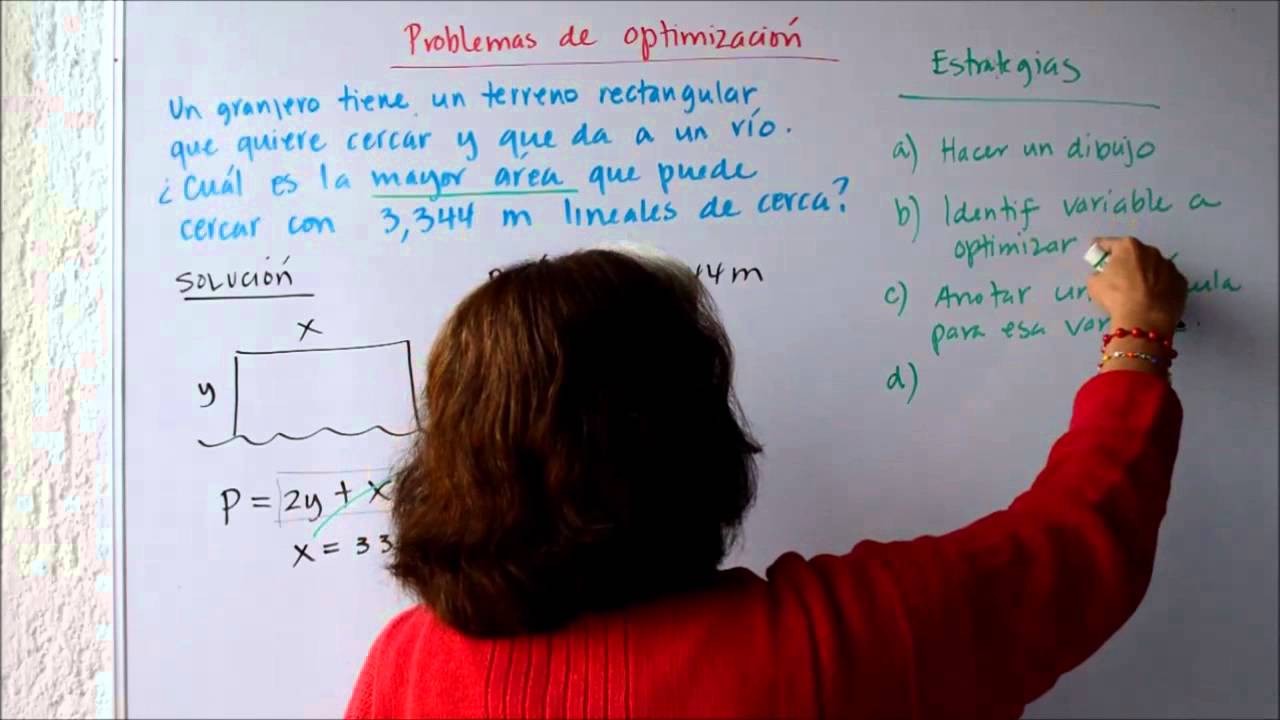 Problemas de optimización
Un granjero tiene un terreno rectangular
que quiere cercar y que da a un río.
¿Cuál es la mayor área que puede
cercar con 3,344 m lineales de cerca?
Solución
44 m
x
y
P = 2y + x
x = 33
Estrategias
a) Hacer un dibujo
b) Identif variable a
optimizar
c) Anotar
para esa
d)